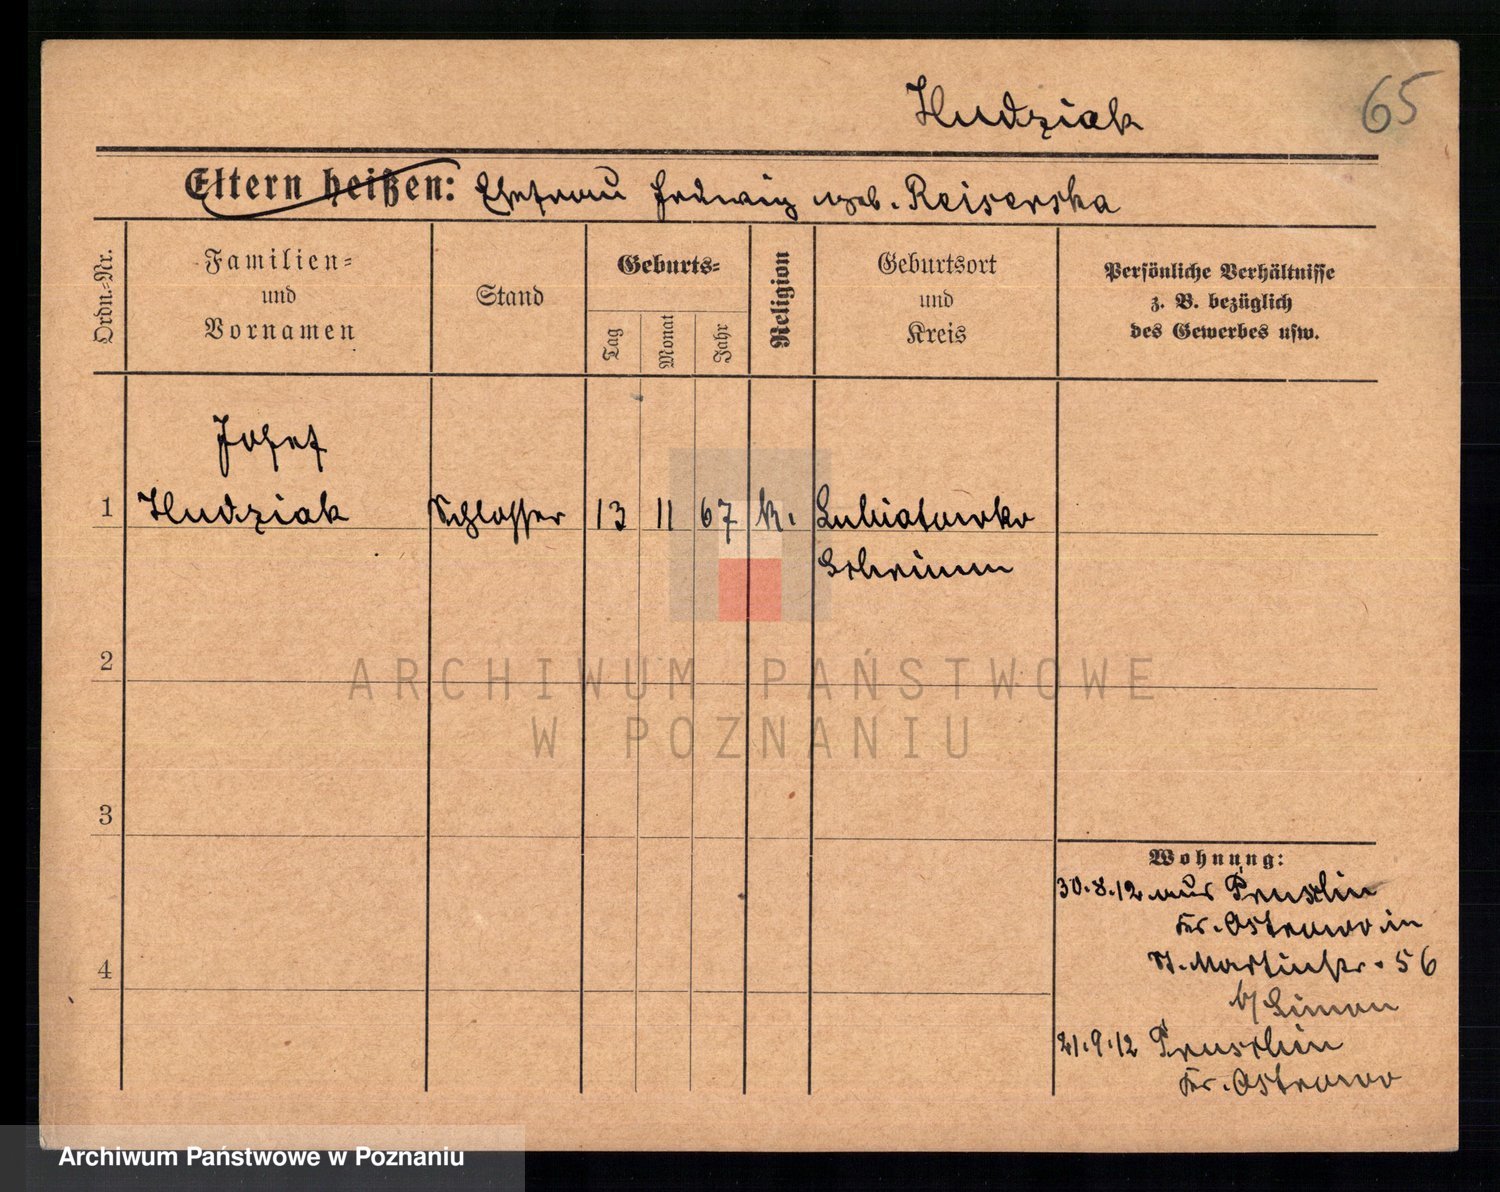 Hudziak
65
Eltern heißen: Ehefrau Hedwig geb. Reiserska
Ordn.-Nr.
Familien-
und
Vornamen
Stand
Geburts-
Tag
Monat
Jahr
Religion
Geburtsort
und
Kreis
Persönliche Verhältnisse
z. B. bezüglich
des Gewerbes usw.
Josef
1 Hudziak Schlosser 13 11 67 k. Lubiatowko
Schrimm
2
3
4
Wohnung:
30.8.12 aus
Kr. Ostrowo in
St. Martinstr. 56
b/ Simon
21.9.12
Kr. Ostrowo
ARCHIWUM PAŃSTWOWE
W POZNANIU
Archiwum Państwowe w Poznaniu